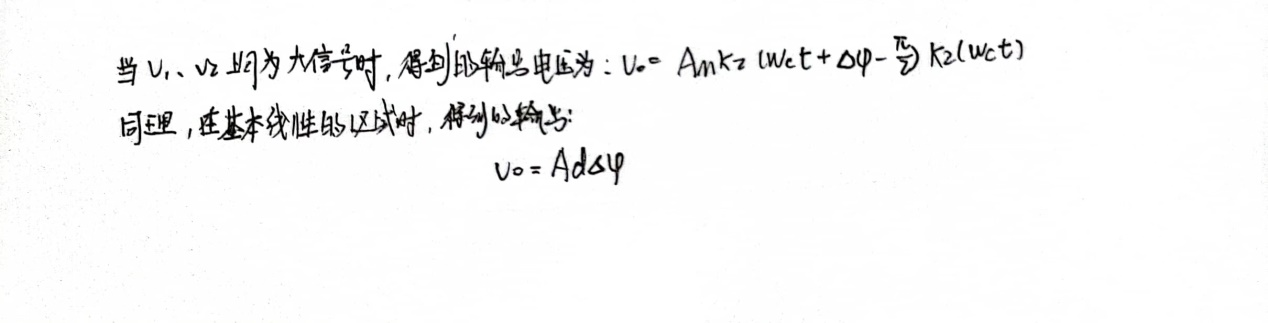 当 V₁、V₂ 均为大信号时,得到的输出电压为:V₀= AmK₂(Wct+Δφ-π/2)K₂(Wct)
同理,在基本线性的区域时,得到的输出:
V₀=AdΔφ